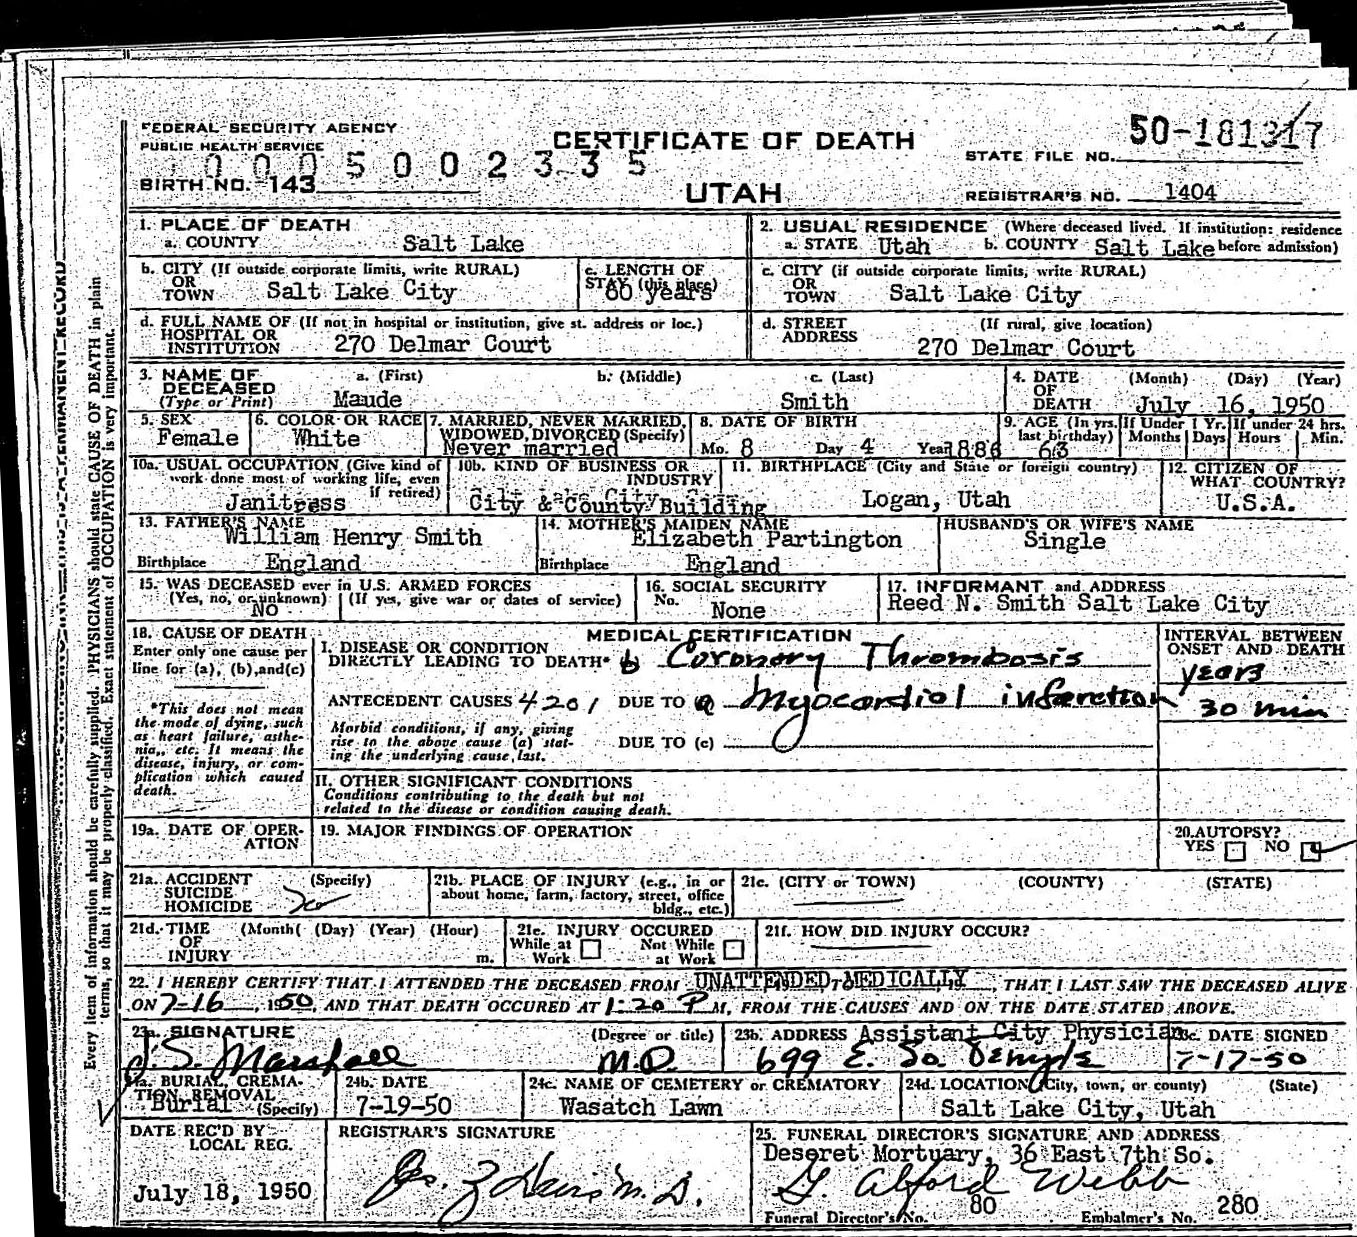 FEDERAL SECURITY AGENCY
PUBLIC HEALTH SERVICE
CERTIFICATE OF DEATH
UTAH
0005002335
BIRTH NO. 143
STATE FILE NO. 50-181317
REGISTRAR'S NO. 1404
1. PLACE OF DEATH
a. COUNTY Salt Lake
2. USUAL RESIDENCE (Where deceased lived. If institution: residence
a. STATE Utah b. COUNTY Salt Lake before admission)
b. CITY (If outside corporate limits, write RURAL)
OR
TOWN Salt Lake City
c. LENGTH OF
STAY (this place)
60 years
c. CITY (if outside corporate limits, write RURAL)
OR
TOWN Salt Lake City
d. FULL NAME OF (If not in hospital or institution, give st. address or loc.)
HOSPITAL OR
INSTITUTION 270 Delmar Court
d. STREET (If rural, give location)
ADDRESS
270 Delmar Court
3. NAME OF a. (First) b. (Middle) c. (Last)
DECEASED
(Type or Print) Maude Smith
4. DATE (Month) (Day) (Year)
OF
DEATH July 16, 1950
5. SEX
Female
6. COLOR OR RACE
White
7. MARRIED, NEVER MARRIED,
WIDOWED, DIVORCED (Specify)
Never married
8. DATE OF BIRTH
Mo. 8 Day 4 Year 1886
9. AGE (In yrs. If Under 1 Yr. If under 24 hrs.
last birthday) Months Days Hours Min.
63
10a. USUAL OCCUPATION (Give kind of
work done most of working life, even
if retired)
Janitress
10b. KIND OF BUSINESS OR
INDUSTRY
City & County Building
11. BIRTHPLACE (City and State or foreign country)
Logan, Utah
12. CITIZEN OF
WHAT COUNTRY?
U.S.A.
13. FATHER'S NAME
William Henry Smith
Birthplace England
14. MOTHER'S MAIDEN NAME
Elizabeth Partington
Birthplace England
HUSBAND'S OR WIFE'S NAME
Single
15. WAS DECEASED ever in U.S. ARMED FORCES
(Yes, no, or unknown) (If yes, give war or dates of service)
NO
16. SOCIAL SECURITY
No. None
17. INFORMANT and ADDRESS
Reed N. Smith Salt Lake City
18. CAUSE OF DEATH
Enter only one cause per
line for (a), (b), and (c)
*This does not mean
the mode of dying, such
as heart failure, asthe-
nia, etc. It means the
disease, injury, or com-
plication which caused
death.
MEDICAL CERTIFICATION
I. DISEASE OR CONDITION
DIRECTLY LEADING TO DEATH* b Coronary Thrombosis
ANTECEDENT CAUSES 4201 DUE TO a Myocardial infarction
Morbid conditions, if any, giving
rise to the above cause (a) stat-
ing the underlying cause last.
DUE TO (c)
II. OTHER SIGNIFICANT CONDITIONS
Conditions contributing to the death but not
related to the disease or condition causing death.
INTERVAL BETWEEN
ONSET AND DEATH
years
30 min
19a. DATE OF OPER-
ATION
19. MAJOR FINDINGS OF OPERATION
20. AUTOPSY?
YES NO
21a. ACCIDENT (Specify)
SUICIDE
HOMICIDE
21b. PLACE OF INJURY (e.g., in or
about home, farm, factory, street, office
bldg., etc.)
21c. (CITY or TOWN) (COUNTY) (STATE)
21d. TIME (Month( (Day) (Year) (Hour)
OF
INJURY m.
21e. INJURY OCCURED
While at Not While
Work at Work
21f. HOW DID INJURY OCCUR?
22. I HEREBY CERTIFY THAT I ATTENDED THE DECEASED FROM UNATTENDED MEDICALLY, THAT I LAST SAW THE DECEASED ALIVE
ON 7-16, 1950, AND THAT DEATH OCCURED AT 1:20 P M, FROM THE CAUSES AND ON THE DATE STATED ABOVE.
23a. SIGNATURE (Degree or title)
J. S. Marshall M.D.
23b. ADDRESS Assistant City Physician
699 E. So. Temple
23c. DATE SIGNED
7-17-50
24a. BURIAL, CREMA-
TION, REMOVAL
Burial (Specify)
24b. DATE
7-19-50
24c. NAME OF CEMETERY or CREMATORY
Wasatch Lawn
24d. LOCATION (City, town, or county) (State)
Salt Lake City, Utah
DATE REC'D BY
LOCAL REG.
July 18, 1950
REGISTRAR'S SIGNATURE
M.D.
25. FUNERAL DIRECTOR'S SIGNATURE AND ADDRESS
Deseret Mortuary, 36 East 7th So.
G. Alford Webb
Funeral Director's No. 80 Embalmer's No. 280
Every item of information should be carefully supplied. PHYSICIANS should state CAUSE OF DEATH in plain
terms, so that it may be properly classified. Exact statement of OCCUPATION is very important.
PERMANENT RECORD